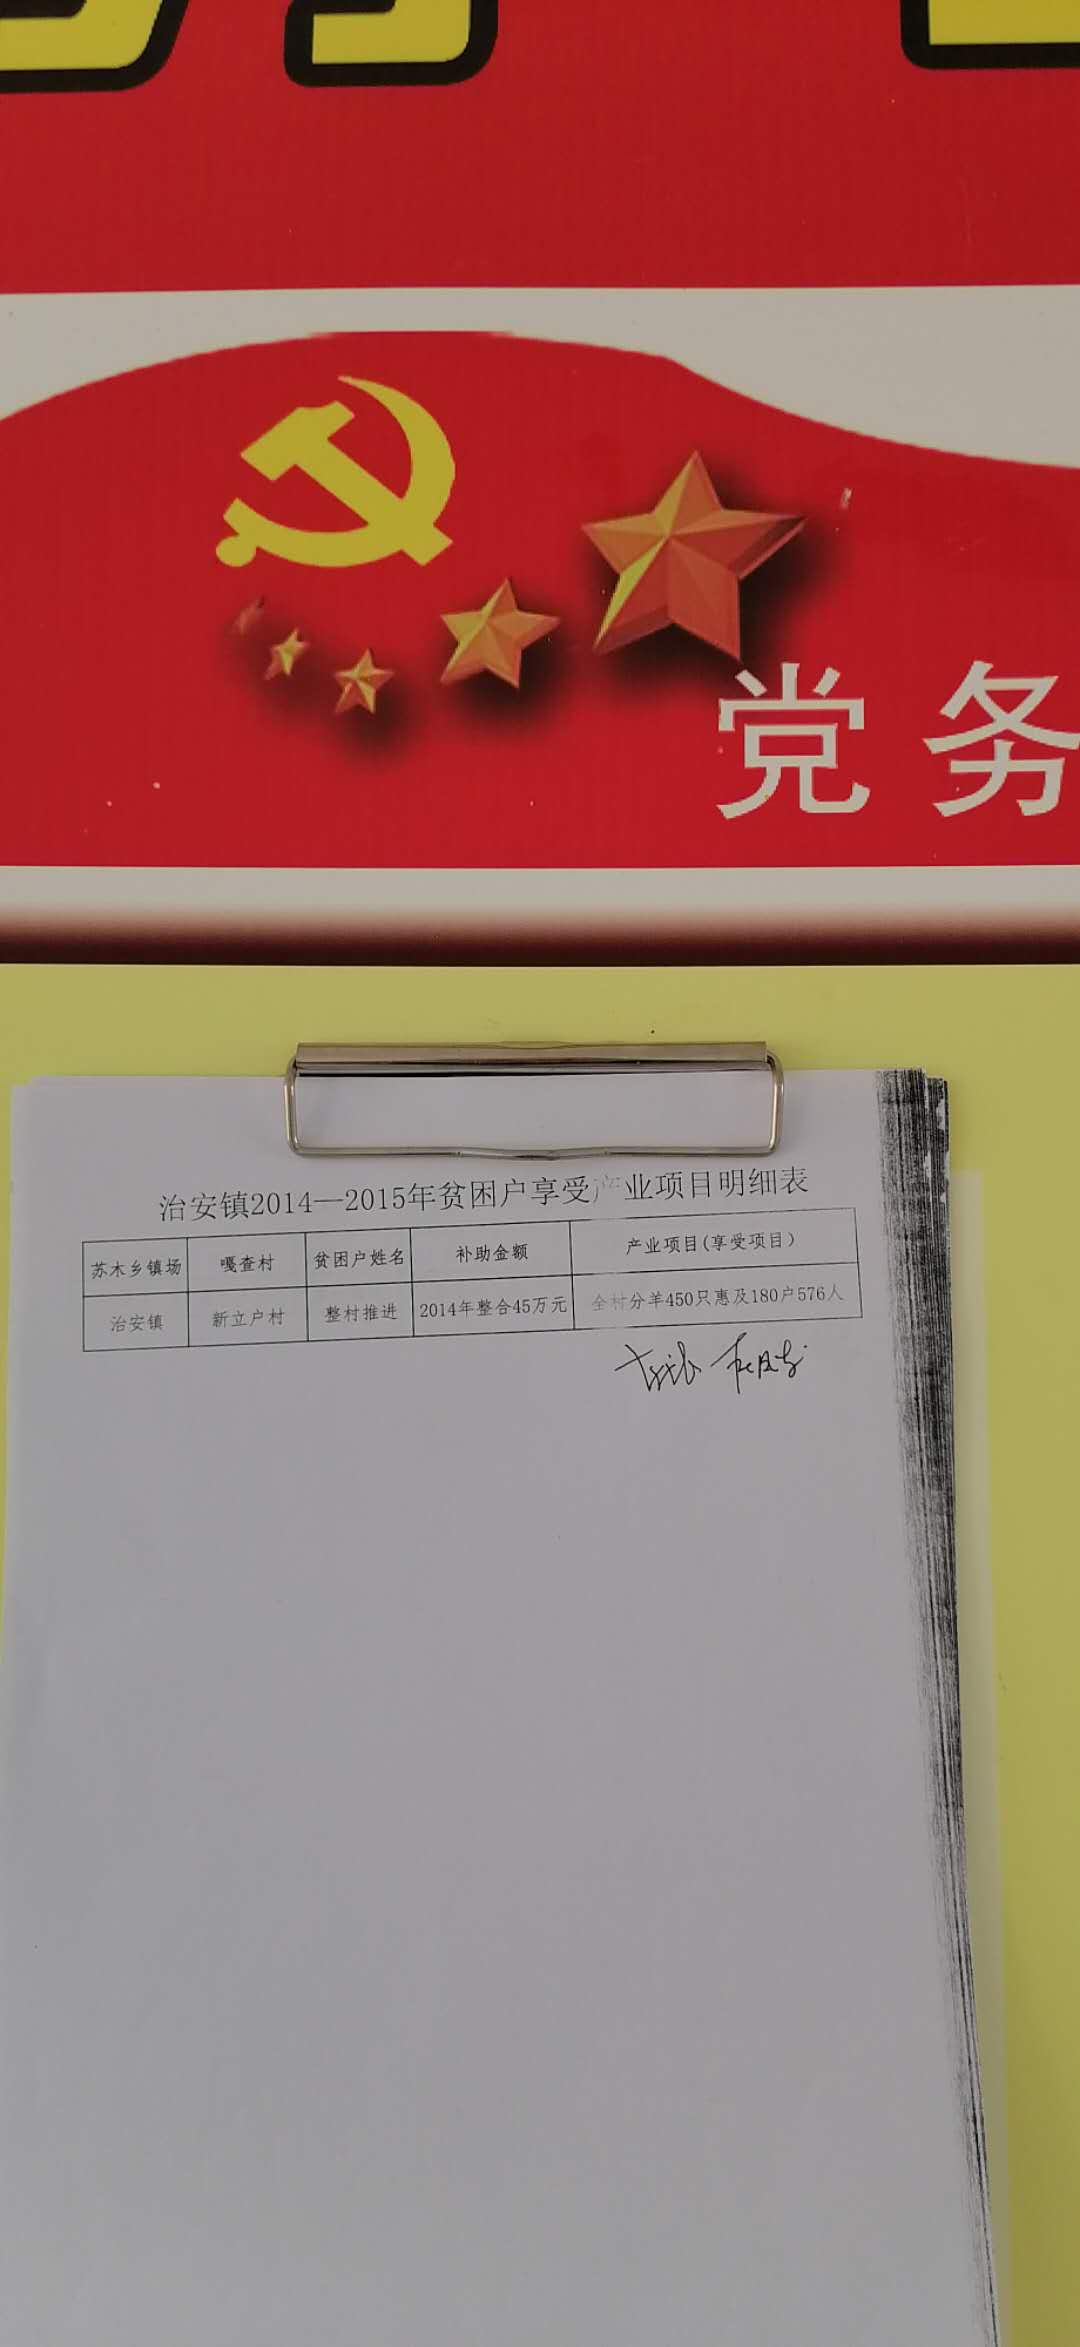 党务
治安镇2014—2015年贫困户享受产业项目明细表
苏木乡镇场 嘎查村 贫困户姓名 补助金额 产业项目(享受项目)
治安镇 新立户村 整村推进 2014年整合45万元 全村分羊450只惠及180户576人